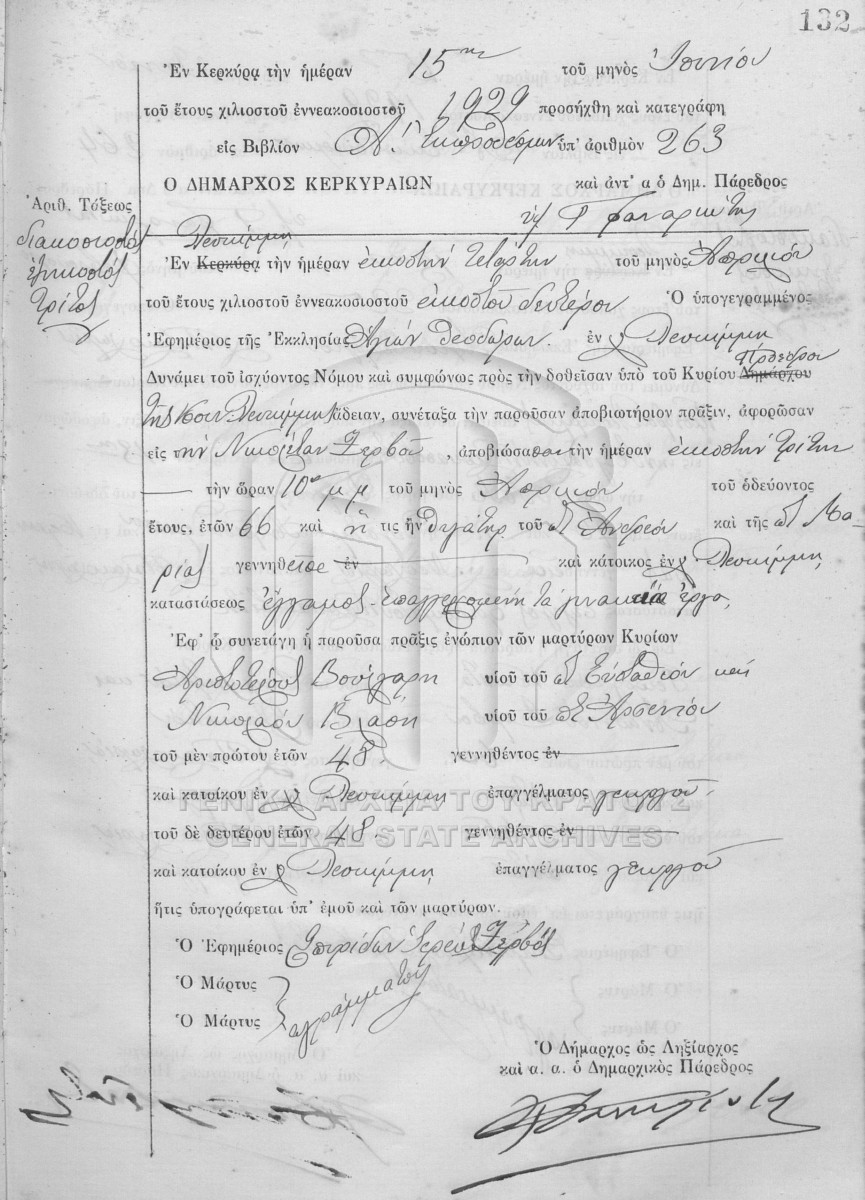 132
Ἐν Κερκύρᾳ τὴν ἡμέραν 15ην τοῦ μηνὸς Ἰουνίου
τοῦ ἔτους χιλιοστοῦ ἐννεακοσιοστοῦ 1929 προσήχθη καὶ κατεγράφη
εἰς Βιβλίον Α. Ἐκπροθέσμων ὑπ' ἀριθμὸν 263
Ο ΔΗΜΑΡΧΟΣ ΚΕΡΚΥΡΑΙΩΝ καὶ ἀντ' α ὁ Δημ. Πάρεδρος
Ἀριθ. Τάξεως
διακοσιοστὸς
ἑξηκοστὸς
τρίτος
Λευκίμμῃ
Ἐν Κερκύρᾳ τὴν ἡμέραν εἰκοστὴν τετάρτην τοῦ μηνὸς Ἀπριλίου
τοῦ ἔτους χιλιοστοῦ ἐννεακοσιοστοῦ εἰκοστοῦ δευτέρου Ὁ ὑπογεγραμμένος
Ἐφημέριος τῆς Ἐκκλησίας Ἁγίων Θεοδώρων ἐν Λευκίμμῃ
Προέδρου
Δυνάμει τοῦ ἰσχύοντος Νόμου καὶ συμφώνως πρὸς τὴν δοθεῖσαν ὑπὸ τοῦ Κυρίου Δημάρχου
τῆς Κοιν Λευκίμμης ἄδειαν, συνέταξα τὴν παροῦσαν ἀποβιωτήριον πρᾶξιν, ἀφορῶσαν
εἰς τὴν Νικολέταν Ζερβοῦ, ἀποβιώσασαν τὴν ἡμέραν εἰκοστὴν τρίτην
τὴν ὥραν 10 μμ τοῦ μηνὸς Ἀπριλίου τοῦ ὁδεύοντος
ἔτους, ἐτῶν 66 καὶ ἥ τις ἦν θυγάτηρ τοῦ Ἀνδρέου καὶ τῆς Μα
ρίας γεννηθεῖσα ἐν καὶ κάτοικος ἐν Λευκίμμῃ
καταστάσεως ἔγγαμος ἐπαγγελομένη τὰ γυναικεῖα ἔργα
Ἐφ' ᾧ συνετάγη ἡ παροῦσα πρᾶξις ἐνώπιον τῶν μαρτύρων Κυρίων
Ἀριστοτέλους Βούλγαρη υἱοῦ τοῦ Εὐσταθίου καὶ
Νικολάου Βλάση υἱοῦ τοῦ Ἀρσενίου
τοῦ μὲν πρώτου ἐτῶν 48. γεννηθέντος ἐν
καὶ κατοίκου ἐν Λευκίμμῃ ἐπαγγέλματος γεωργοῦ
ΓΕΝΙΚΑ ΑΡΧΕΙΑ ΤΟΥ ΚΡΑΤΟΥΣ
τοῦ δὲ δευτέρου ἐτῶν 48. γεννηθέντος ἐν
GENERAL STATE ARCHIVES
καὶ κατοίκου ἐν Λευκίμμῃ ἐπαγγέλματος γεωργοῦ
ἥτις ὑπογράφεται ὑπ' ἐμοῦ καὶ τῶν μαρτύρων.
Ὁ Ἐφημέριος Σπυρίδων Ἱερεὺς Ζερβὸς
Ὁ Μάρτυς
Ὁ Μάρτυς ἀγράμματοι
Ὁ Δήμαρχος ὡς Ληξίαρχος
καὶ α. α. ὁ Δημαρχικὸς Πάρεδρος